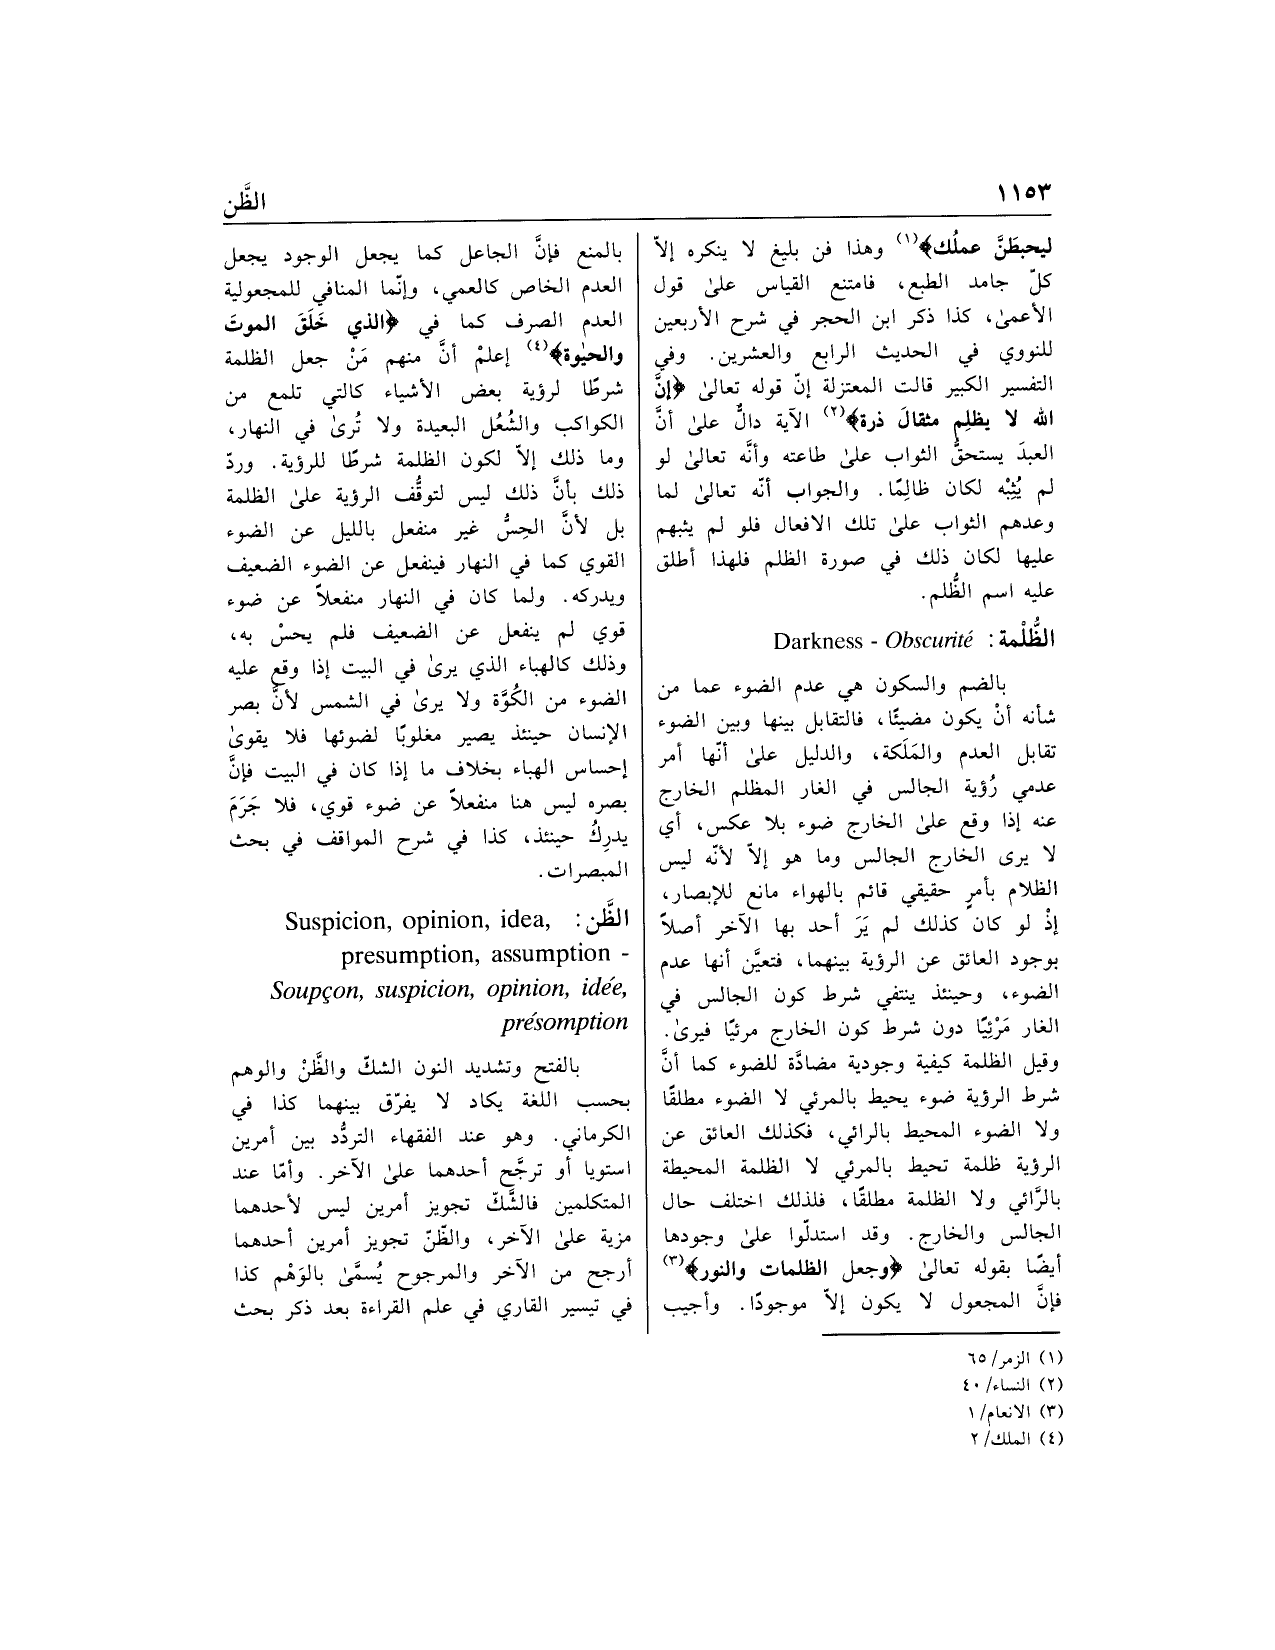 ١١٥٣
الظَّن
ليحبطَنَّ عملُك﴾(١) وهذا فن بليغ لا ينكره إلاّ
كلّ جامد الطبع، فامتنع القياس علىٰ قول
الأعمىٰ، كذا ذكر ابن الحجر في شرح الأربعين
للنووي في الحديث الرابع والعشرين. وفي
التفسير الكبير قالت المعتزلة إنّ قوله تعالىٰ ﴿إنَّ
الله لا يظلِم مثقالَ ذرة﴾(٢) الآية دالٌّ علىٰ أنَّ
العبدَ يستحقُّ الثواب علىٰ طاعته وأنَّه تعالىٰ لو
لم يُثِبْه لكان ظالِمًا. والجواب أنّه تعالىٰ لما
وعدهم الثواب علىٰ تلك الافعال فلو لم يثبهم
عليها لكان ذلك في صورة الظلم فلهذا أطلق
عليه اسم الظُّلم.
الظُّلْمة: Darkness - Obscurité
بالضم والسكون هي عدم الضوء عما من
شأنه أنْ يكون مضيئًا، فالتقابل بينها وبين الضوء
تقابل العدم والمَلَكة، والدليل علىٰ أنّها أمر
عدمي رُؤية الجالس في الغار المظلم الخارج
عنه إذا وقع علىٰ الخارج ضوء بلا عكس، أي
لا يرى الخارج الجالس وما هو إلاّ لأنّه ليس
الظلام بأمرٍ حقيقي قائم بالهواء مانع للإبصار،
إذْ لو كان كذلك لم يَرَ أحد بها الآخر أصلاً
بوجود العائق عن الرؤية بينهما، فتعيَّن أنها عدم
الضوء، وحينئذ ينتفي شرط كون الجالس في
الغار مَرْئِيًا دون شرط كون الخارج مرئيًا فيرىٰ.
وقيل الظلمة كيفية وجودية مضادَّة للضوء كما أنَّ
شرط الرؤية ضوء يحيط بالمرئي لا الضوء مطلقًا
ولا الضوء المحيط بالرائي، فكذلك العائق عن
الرؤية ظلمة تحيط بالمرئي لا الظلمة المحيطة
بالرَّائي ولا الظلمة مطلقًا، فلذلك اختلف حال
الجالس والخارج. وقد استدلّوا علىٰ وجودها
أيضًا بقوله تعالىٰ ﴿وجعل الظلمات والنور﴾(٣)
فإنَّ المجعول لا يكون إلاّ موجودًا. وأجيب
بالمنع فإنَّ الجاعل كما يجعل الوجود يجعل
العدم الخاص كالعمي، وإنّما المنافي للمجعولية
العدم الصرف كما في ﴿الذي خَلَقَ الموتَ
والحيٰوة﴾(٤) إعلمْ أنَّ منهم مَنْ جعل الظلمة
شرطًا لرؤية بعض الأشياء كالتي تلمع من
الكواكب والشُعُل البعيدة ولا تُرىٰ في النهار،
وما ذلك إلاّ لكون الظلمة شرطًا للرؤية. وردّ
ذلك بأنَّ ذلك ليس لتوقُّف الرؤية علىٰ الظلمة
بل لأنَّ الحِسُّ غير منفعل بالليل عن الضوء
القوي كما في النهار فينفعل عن الضوء الضعيف
ويدركه. ولما كان في النهار منفعلاً عن ضوء
قوي لم ينفعل عن الضعيف فلم يحسْ به،
وذلك كالهباء الذي يرىٰ في البيت إذا وقع عليه
الضوء من الكُوَّة ولا يرىٰ في الشمس لأنَّ بصر
الإنسان حينئذ يصير مغلوبًا لضوئها فلا يقوىٰ
إحساس الهباء بخلاف ما إذا كان في البيت فإنَّ
بصره ليس هنا منفعلاً عن ضوء قوي، فلا جَرَمَ
يدرِكُ حينئذ، كذا في شرح المواقف في بحث
المبصرات.
الظَّن: Suspicion, opinion, idea,
presumption, assumption -
Soupçon, suspicion, opinion, idée,
présomption
بالفتح وتشديد النون الشكّ والظَّنْ والوهم
بحسب اللغة يكاد لا يفرّق بينهما كذا في
الكرماني. وهو عند الفقهاء التردُّد بين أمرين
استويا أو ترجَّح أحدهما علىٰ الآخر. وأمّا عند
المتكلمين فالشَّكّ تجويز أمرين ليس لأحدهما
مزية علىٰ الآخر، والظّنّ تجويز أمرين أحدهما
أرجح من الآخر والمرجوح يُسمَّىٰ بالوَهْم كذا
في تيسير القاري في علم القراءة بعد ذكر بحث
(١) الزمر/ ٦٥
(٢) النساء/ ٤٠
(٣) الانعام/ ١
(٤) الملك/ ٢